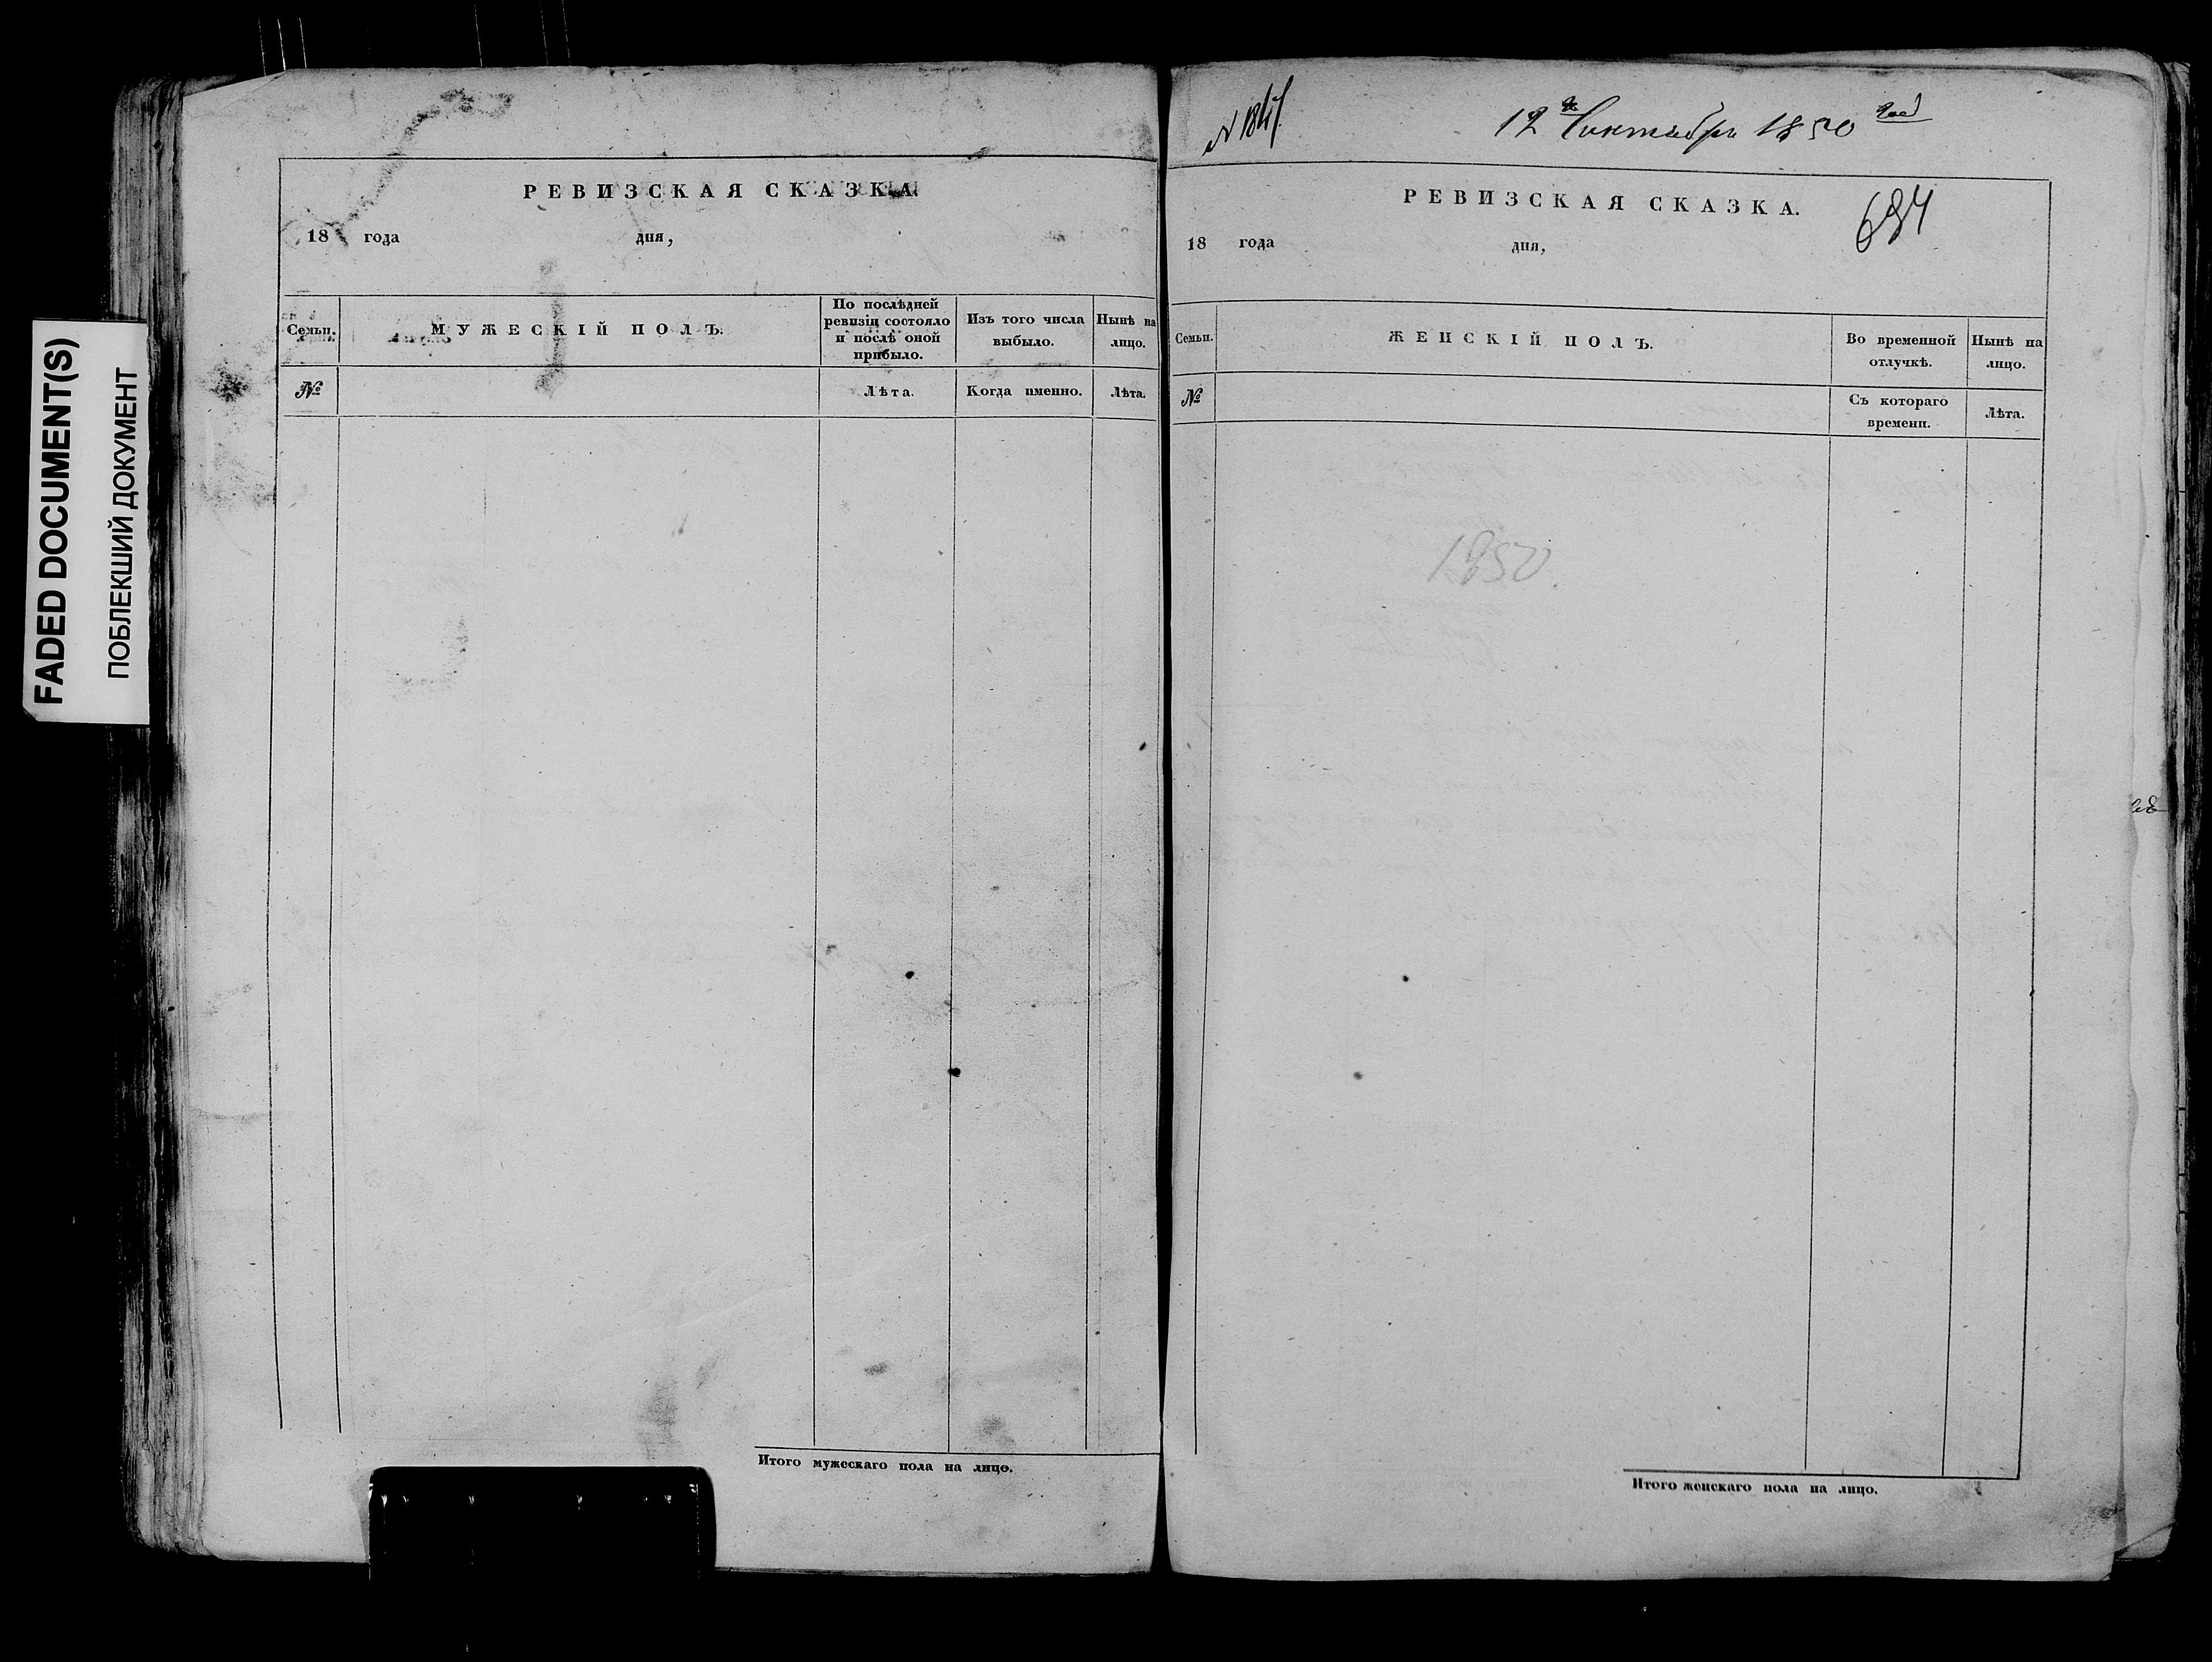 FADED DOCUMENT(S)
ПОБЛЕКШИЙ ДОКУМЕНТ
РЕВИЗСКАЯ СКАЗКА.
18 года дня,
Семьи.
МУЖЕСКІЙ ПОЛЪ.
По послѣдней
ревизіи состояло
и послѣ оной
прибыло.
Изъ того числа
выбыло.
Нынѣ на
лицо.
№
Лѣта.
Когда именно.
Лѣта.
Итого мужескаго пола на лицо.
12 Сентября 1850 года
РЕВИЗСКАЯ СКАЗКА.
694
18 года дня,
Семьи.
ЖЕНСКІЙ ПОЛЪ.
Во временной
отлучкѣ.
Нынѣ на
лицо.
№
Съ котораго
времени.
Лѣта.
1850.
Итого женскаго пола на лицо.